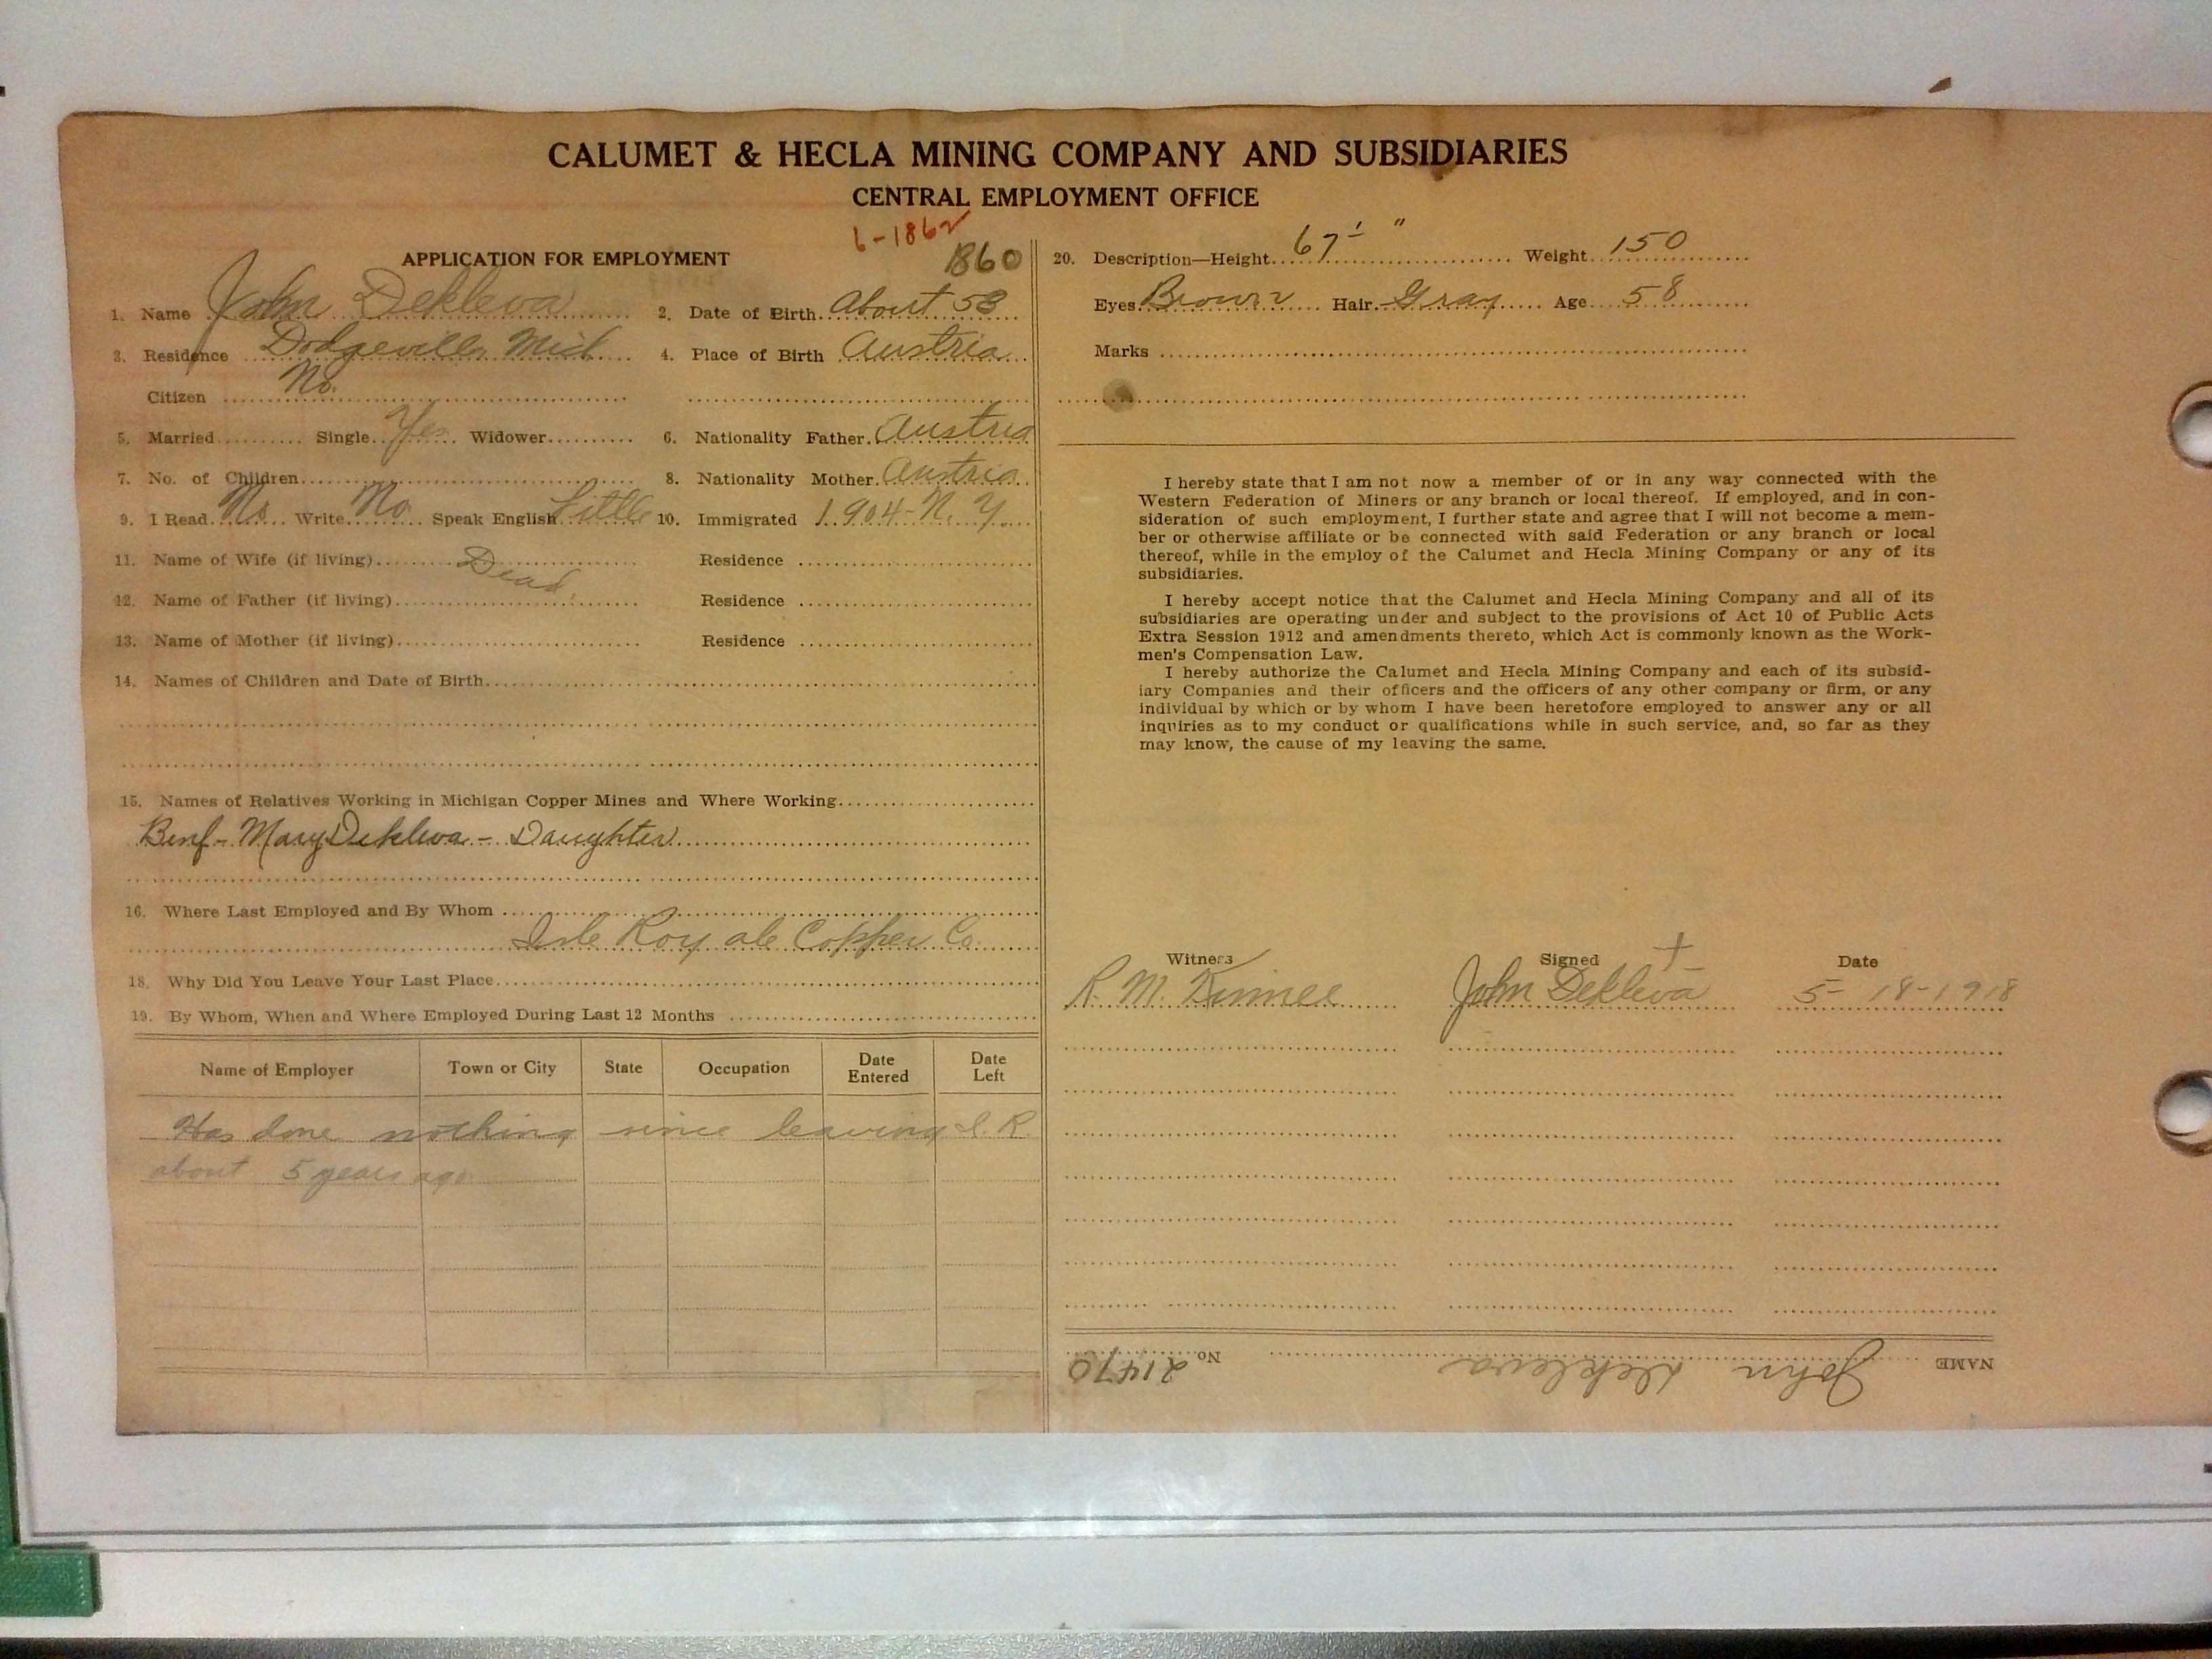 CALUMET & HECLA MINING COMPANY AND SUBSIDIARIES
CENTRAL EMPLOYMENT OFFICE
6-1862
APPLICATION FOR EMPLOYMENT 1860
1. Name John Dekleva 2. Date of Birth About 58
3. Residence Dodgeville Mich 4. Place of Birth Austria
Citizen No.
5. Married Single Yes Widower 6. Nationality Father Austria
7. No. of Children 8. Nationality Mother Austria
9. I Read No Write No Speak English Little 10. Immigrated 1904-N.Y.
11. Name of Wife (if living) Dead. Residence
12. Name of Father (if living) Residence
13. Name of Mother (if living) Residence
14. Names of Children and Date of Birth
15. Names of Relatives Working in Michigan Copper Mines and Where Working
Benf- Mary Dekleva - Daughter
16. Where Last Employed and By Whom
Isle Royale Copper Co.
18. Why Did You Leave Your Last Place
19. By Whom, When and Where Employed During Last 12 Months
Name of Employer Town or City State Occupation Date Entered Date Left
Has done nothing since leaving I.R.
about 5 years ago.
20. Description—Height 67 " Weight 150
Eyes Brown Hair Gray Age 58
Marks
I hereby state that I am not now a member of or in any way connected with the
Western Federation of Miners or any branch or local thereof. If employed, and in con-
sideration of such employment, I further state and agree that I will not become a mem-
ber or otherwise affiliate or be connected with said Federation or any branch or local
thereof, while in the employ of the Calumet and Hecla Mining Company or any of its
subsidiaries.
I hereby accept notice that the Calumet and Hecla Mining Company and all of its
subsidiaries are operating under and subject to the provisions of Act 10 of Public Acts
Extra Session 1912 and amendments thereto, which Act is commonly known as the Work-
men's Compensation Law.
I hereby authorize the Calumet and Hecla Mining Company and each of its subsid-
iary Companies and their officers and the officers of any other company or firm, or any
individual by which or by whom I have been heretofore employed to answer any or all
inquiries as to my conduct or qualifications while in such service, and, so far as they
may know, the cause of my leaving the same.
Witness Signed + Date
R. M. Kinnee John Dekleva 5-18-1918
NAME John Dekleva No. 21470